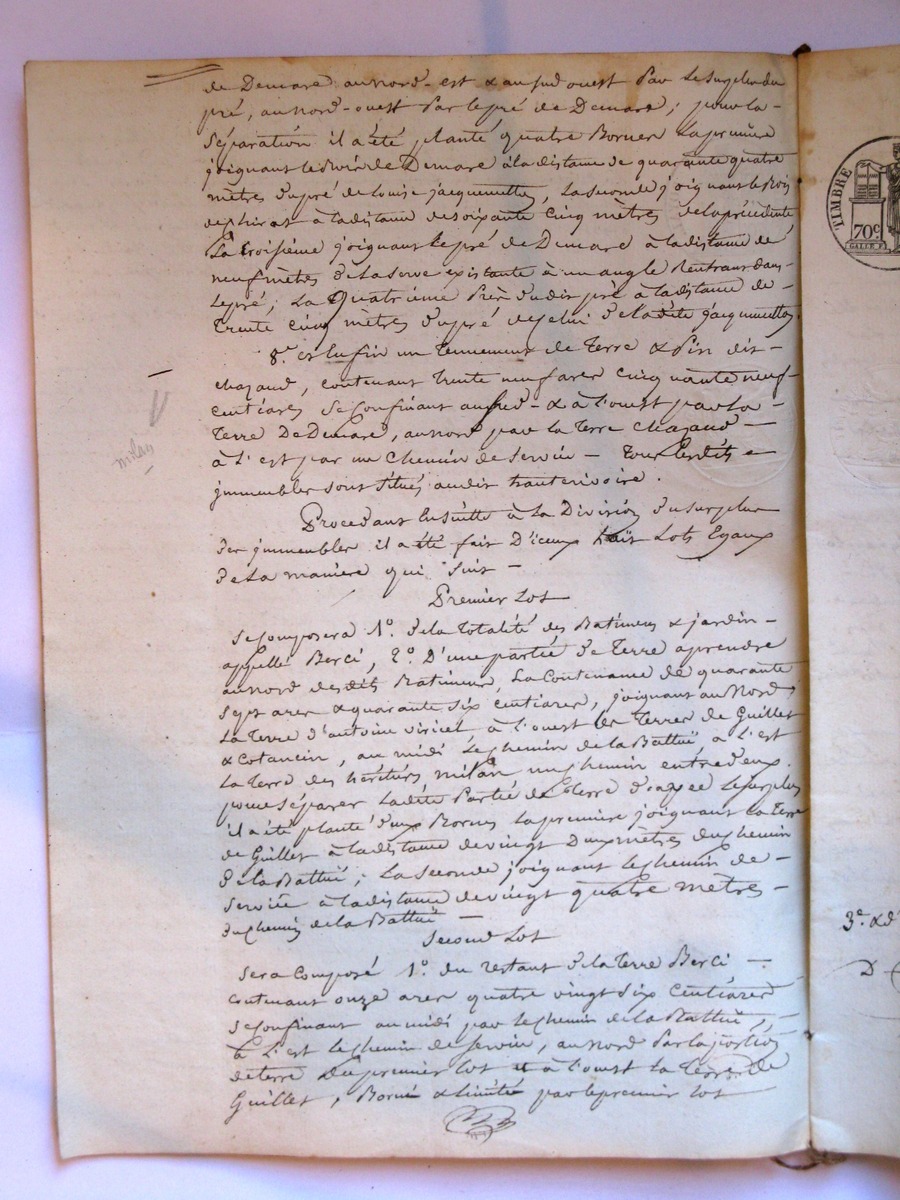 de Demare au nord-est & au sud ouest par le surplus du
pré, au nord-ouest par le pré de Demare; pour la
séparation il a été planté quatre Bornes la première
joignant le de Demare à la distance de quarante quatre
mètres du pré de Louise jacquemettes, la seconde joignant le Bois
de à la distance de soixante cinq mètres de la précédente
La troisième joignant le pré de Demare à la distance de
neuf mètres de la serve existante à un angle Rentrant dans
le pré; La Quatrième Près dudit pré à la distance de
trente cinq mètres du pré de celui de ladite jacquemettes.
8°. et Enfin un Tennement de Terre & Pin dit
chazaud, contenant trente neuf ares cinquante neuf
centiares se confinant au sud & à l'ouest par la
Terre De Demare, au nord par la terre chazaud
à l'est par un chemin de service Tous lesdits
immeubles sont situés audit hauterivoire.
Procedant Ensuitte à la Division du surplus
des immeubles il a été fait D'iceux huit Lots Egaux
de la manière qui suit
Premier Lot
Se composera 1°. de la Totalité des Batimens & jardin
appellé Berci, 2°. D'une partie de Terre aprendre
au nord desdits Batimens, La Contenance de quarante
sept ares & quarante six centiares, joignant au Nord
La Terre d'antoine viricel, à l'ouest les Terres de Guillet
& Cotancin, au midi le chemin de la Battue, à l'est
la terre des héritiers milan un chemin entre deux.
pour séparer Ladite Partie de Terre d'avec le surplus
il a été planté deux Bornes la première joignant la Terre
de Guillet à la distance de vingt Deux mètres du chemin
de la Battue; La seconde joignant le chemin de
service à la distance de vingt quatre mètres
du chemin de la Battue
Second Lot
Sera Composé 1°. du restant de la Terre Berci
contenant onze ares quatre vingt six centiares
se confinant au midi par le chemin de la Battue,
à l'est le chemin de service, au nord Par la portion
de terre du premier lot et à l'ouest la Terre de
Guillet, Borné & limité par le premier lot
milan
TIMBRE
70c
3°. & d'
D